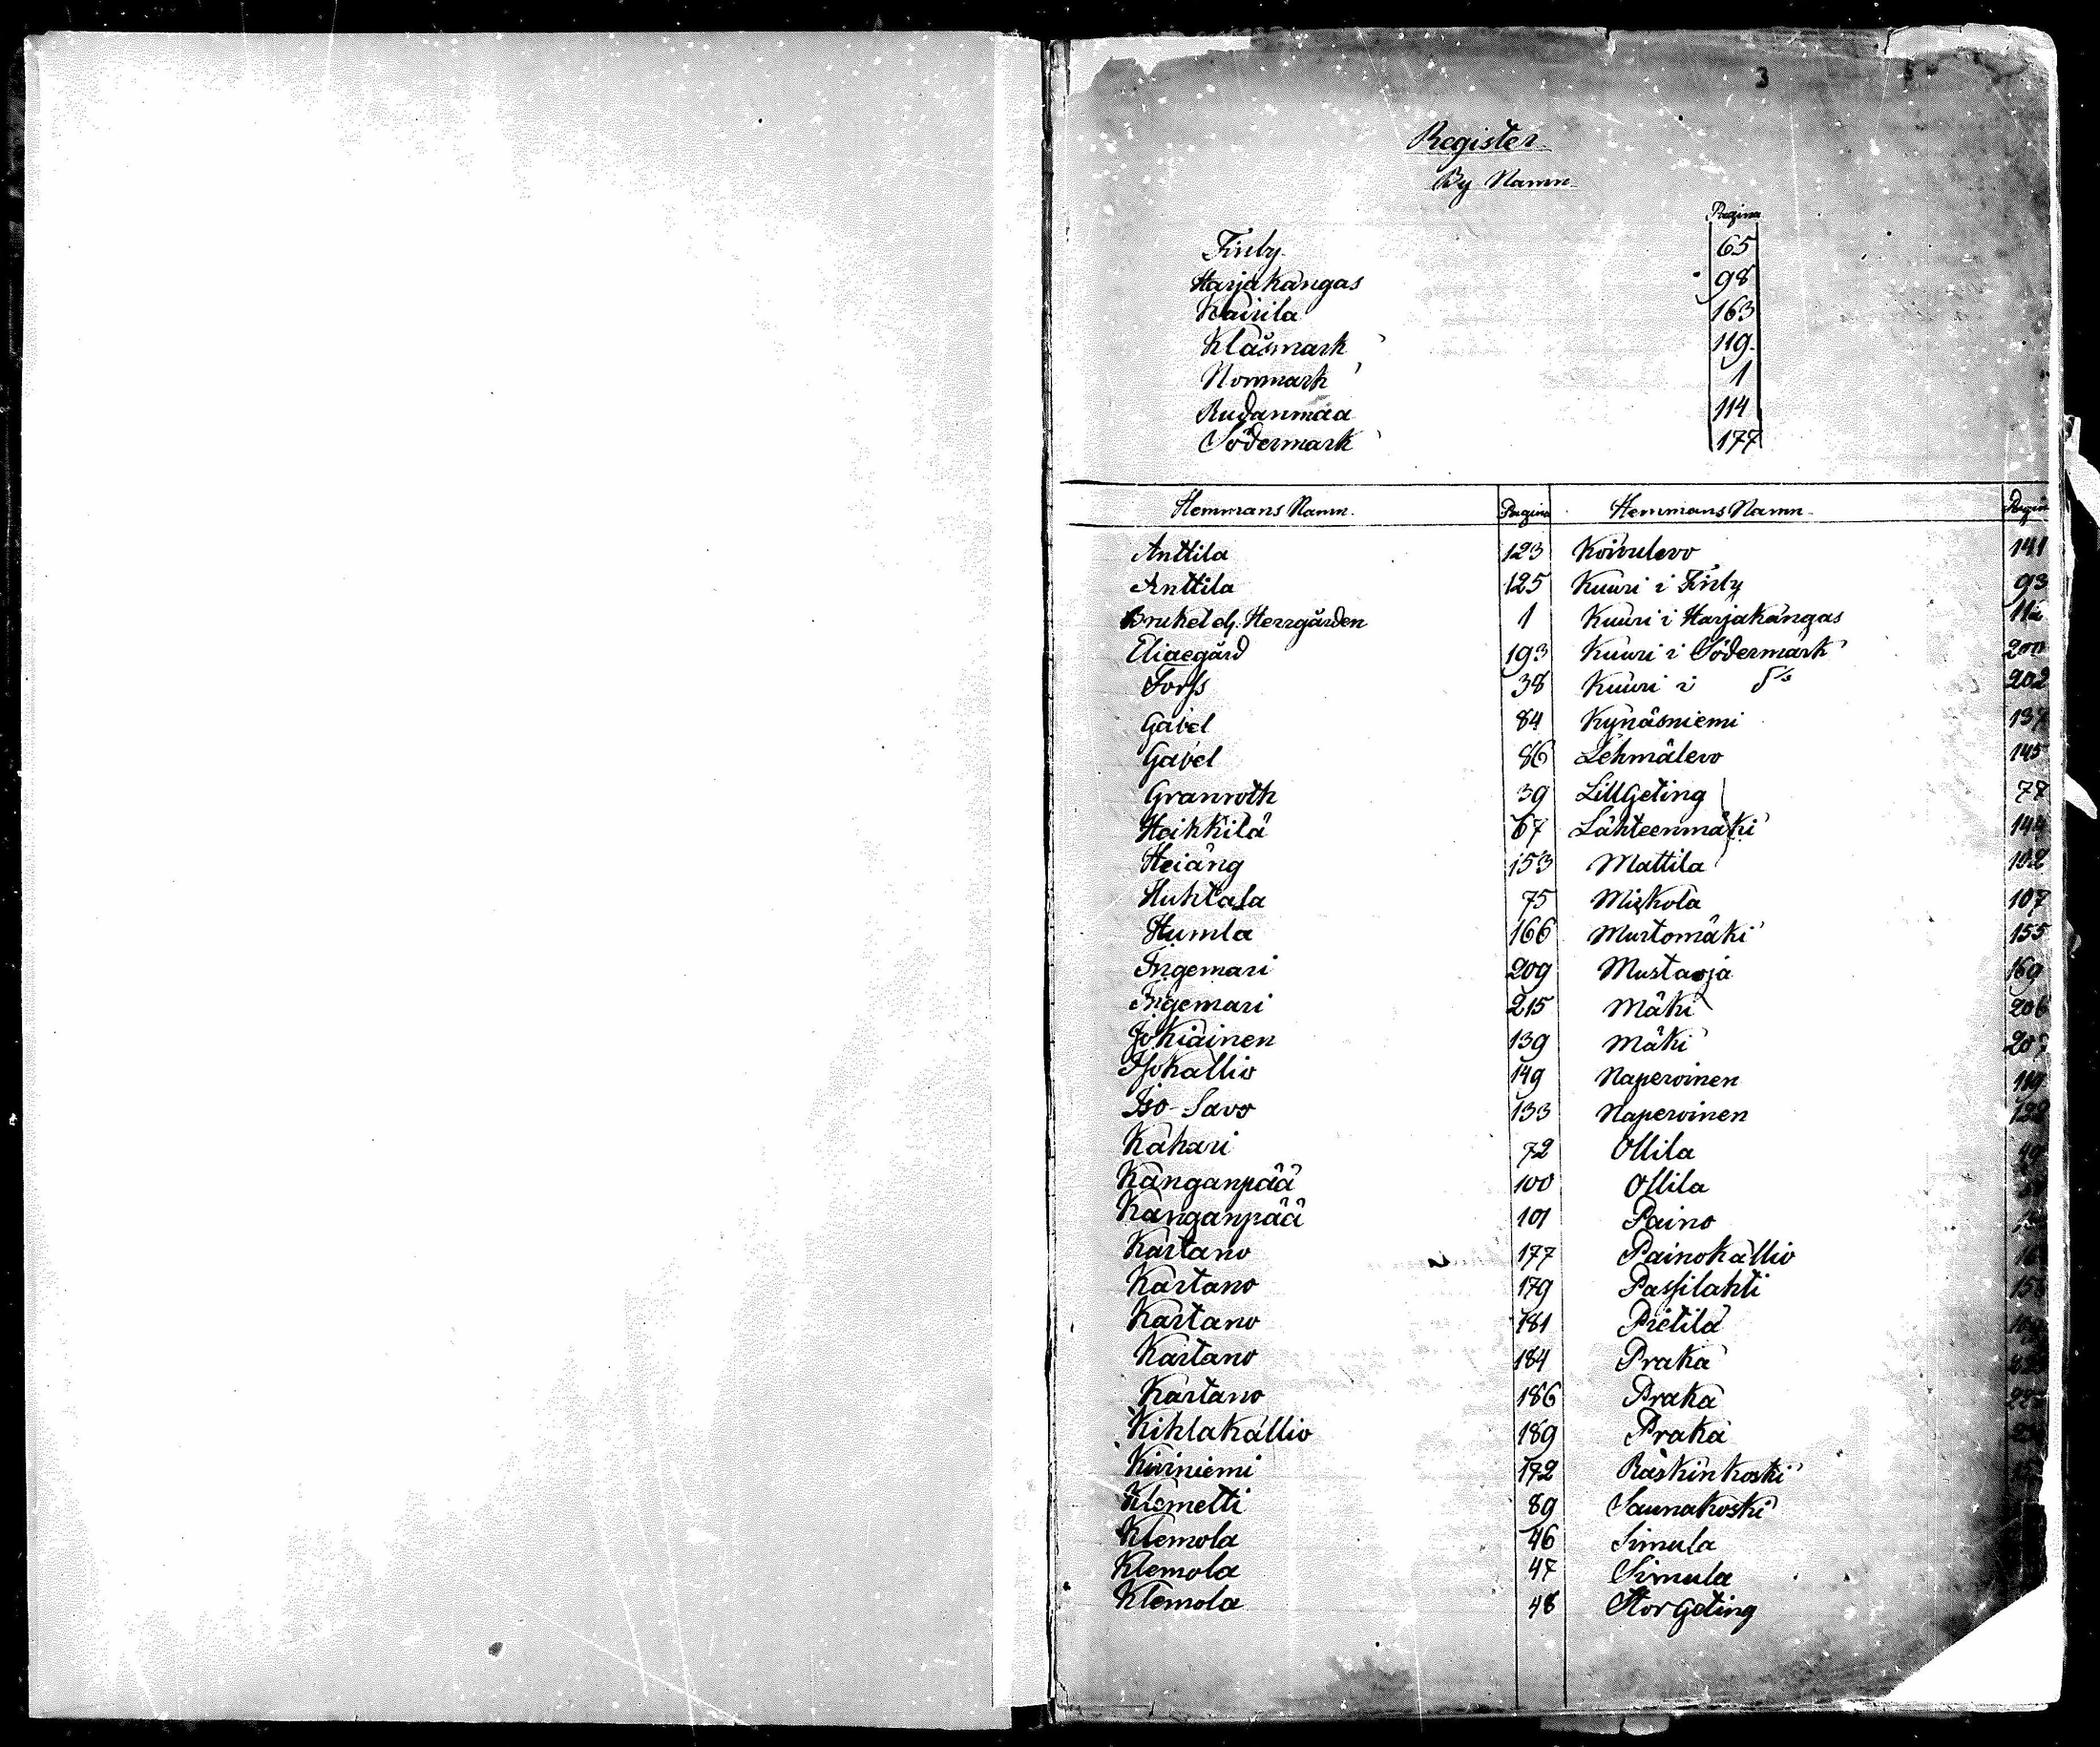 3
Register
By Namn
Pagina
Finby 65
Harjakangas 98
Kairila 163
Klåsmark 119
Norrmark 1
Ruðanmaa 114
Södermark 177
Hemmans Namn. Pagina Hemmans Namn. Pagina
Anttila 123 Koivulevo 141
Anttila 125 Kuuri i Finby 93
Bruket el. Herrgården 1 Kuuri i Harjakangas 112
Eliaegård 193 Kuuri i Södermark 200
Forss 38 Kuuri i 202
Gavel 84 Kynäsniemi 137
Gavel 86 Lehmälevo 145
Granroth 39 LillGeting 77
Heikkilä 67 Lähteenmäki 144
Heiäng 153 Mattila 102
Huhtala 75 Miskola 107
Humla 166 Murtomäki 155
Ingemari 209 Mustaoja 169
Ingemari 215 Mäki 206
Jokiainen 139 Mäki
Isokallio 149 Napervinen 119
Iso-Savo 133 Napervinen 122
Kahari 72 Ollila
Kanganpää 100 Ollila
Kanganpää 101 Paino
Kartano 177 Painokallio
Kartano 179 Passilahti
Kartano 181 Pietilä
Kartano 184 Praka
Kartano 186 Praka
Kihlakallio 189 Praka
Kiviniemi 172 Räskinkoski
Klemetti 89 Saunakoski
Klemola 46 Simula
Klemola 47 Simula
Klemola 48 StorGeting